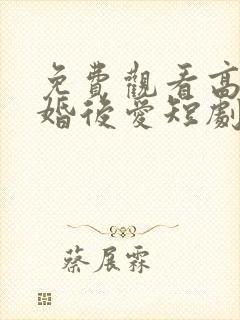 免費觀看高
婚後愛短劇
蔡展霖